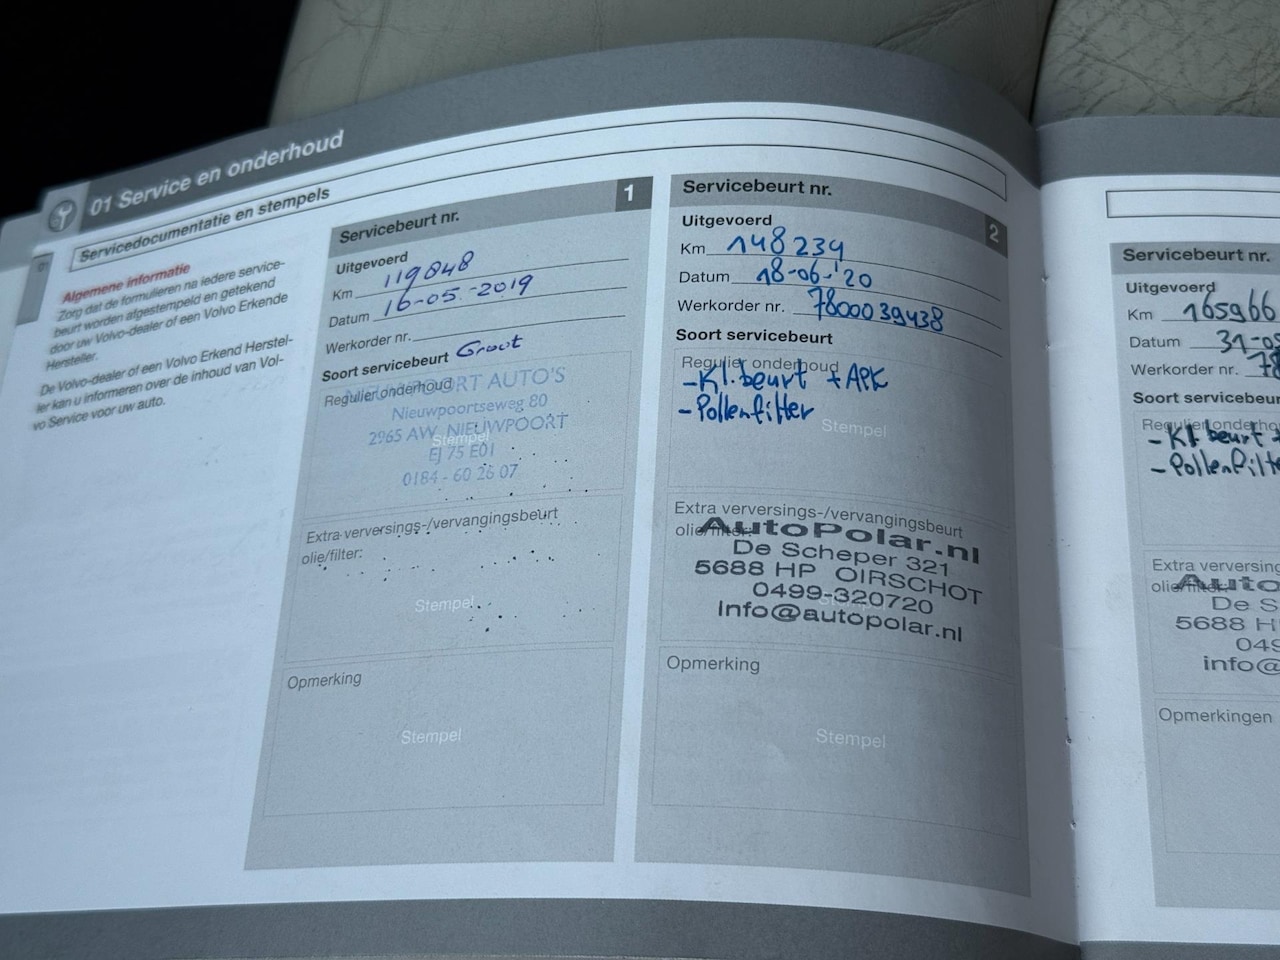 01 Service en onderhoud
Servicedocumentatie en stempels
01
Algemene informatie
Zorg dat de formulieren na iedere service-
beurt worden afgestempeld en getekend
door uw Volvo-dealer of een Volvo Erkende
Hersteller.
De Volvo-dealer of een Volvo Erkend Herstel-
ler kan u informeren over de inhoud van Vol-
vo Service voor uw auto.
Servicebeurt nr. 1
Uitgevoerd
Km 119848
Datum 16-05-2019
Werkorder nr.
Soort servicebeurt Groot
Regulier onderhoud
NIEUWPOORT AUTO'S
Nieuwpoortseweg 80
2965 AW NIEUWPOORT
Stempel
EJ 75 E01
0184 - 60 26 07
Extra verversings-/vervangingsbeurt
olie/filter:
Stempel
Opmerking
Stempel
Servicebeurt nr. 2
Uitgevoerd
Km 148234
Datum 18-06-'20
Werkorder nr. 7800039438
Soort servicebeurt
Regulier onderhoud
-Kl.beurt + APK
-Pollenfilter
Stempel
Extra verversings-/vervangingsbeurt
olie/filter:
AutoPolar.nl
De Scheper 321
5688 HP OIRSCHOT
0499-320720
Stempel
info@autopolar.nl
Opmerking
Stempel
Servicebeurt nr.
Uitgevoerd
Km 165966
Datum 31-0
Werkorder nr. 78
Soort servicebeur
Regulier onderho
-Kl.beurt +
-Pollenfilte
Extra versversing
olie/filter:
Auto
De S
5688 H
049
info@
Opmerkingen